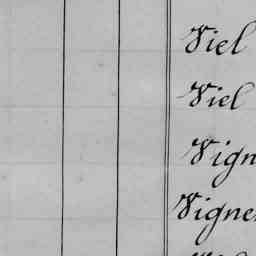 Viel
Viel
Vign
Vigne